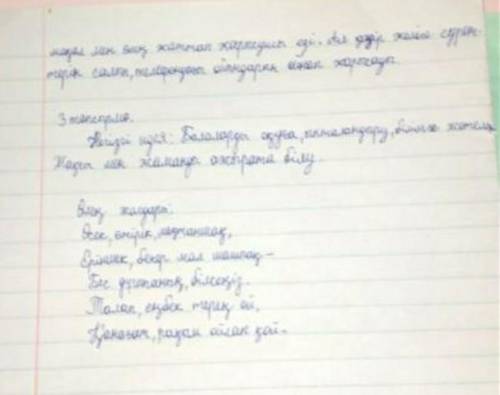 мақал мен өлең жаттап жарысушы еді. Ал қазір желіге сурет-
терін салып, телефондағы ойындарын ойнап жарысады.
3 тапсырма.
Негізгі идея: Балаларды оқуға, ынталандыру, білімге жетелеу
Жақсы мен жаманды ажырата білу.
Өлең жолдары:
Өсек, өтірік, мақтаншақ,
Еріншек, бекер мал шашпақ –
Бес дұшпаның, білсеңіз.
Талап, еңбек, терең ой,
Қанағат, рақым ойлап қой –